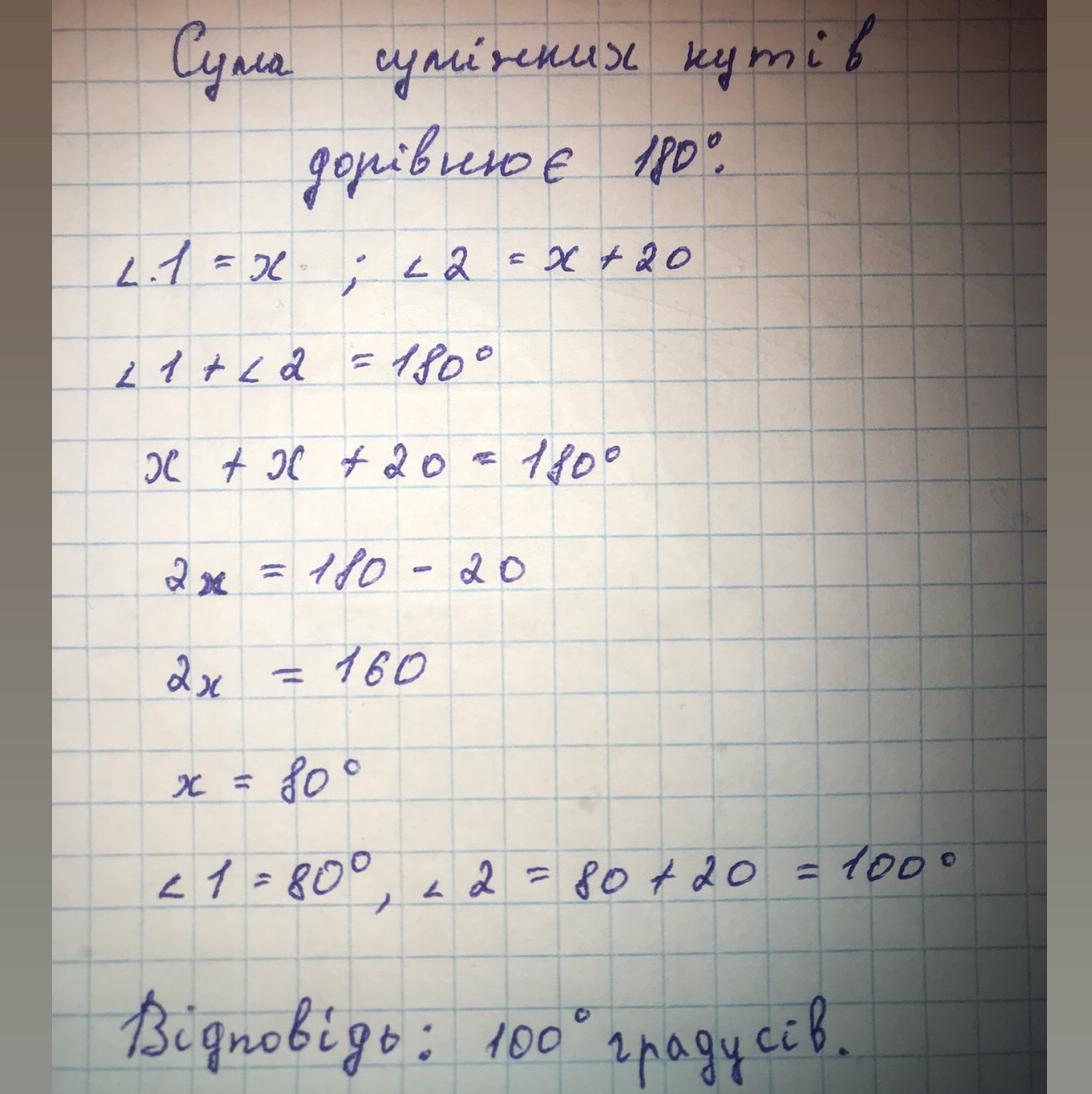 Сума суміжних кутів
дорівнює 180°.
∠.1 = x ; ∠2 = x + 20
∠1 + ∠2 = 180°
x + x + 20 = 180°
2x = 180 - 20
2x = 160
x = 80°
∠1 = 80°, ∠2 = 80 + 20 = 100°
Відповідь: 100° градусів.